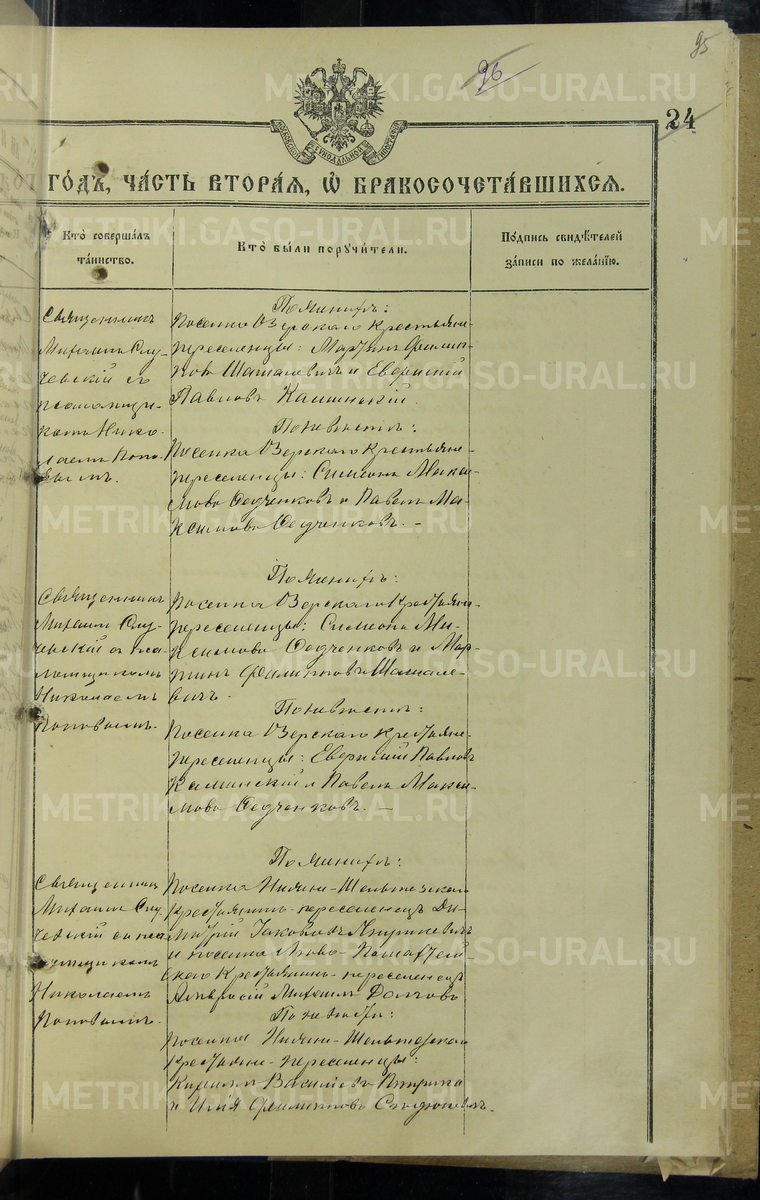 95
96
24
МОСКОВСКОЙ СѴНОДАЛЬНОЙ ТИПОГРАФІИ
ГО́ДЪ, ЧА́СТЬ ВТОРА́Я, Ѡ БРАКОСОЧЕТА́ВШИХСЯ.
Кто̀ соверша́лъ
та́инство.
Кто̀ бы́ли поручи́тели.
По́дпись свидѣ́телей
за́писи по жела́нїю.
Священникъ
Михаилъ Слу-
чевскій съ
псаломщи-
комъ Нико-
лаемъ Попо-
вымъ.
По женихѣ:
Поселка Озерскаго крестьяне-
переселенцы: Мартинъ Филип-
повъ Шаталевичъ и Евфимій
Павловъ Калинскій.
По невѣстѣ:
Поселка Озерскаго крестьяне-
переселенцы: Симеонъ Макси-
мовъ Федченковъ и Павелъ Ма-
ксимовъ Федченковъ. —
Священникъ
Михаилъ Слу-
чевскій съ пса-
ломщикомъ
Николаемъ
Поповымъ.
По женихѣ:
Поселка Озерскаго крестьяне-
переселенцы: Симеонъ Ма-
ксимовъ Федченковъ и Мар-
тинъ Филипповъ Шатале-
вичъ.
По невѣстѣ:
Поселка Озерскаго крестьяне-
переселенцы: Евфимій Павловъ
Калинскій и Павелъ Макси-
мовъ Федченковъ. —
Священникъ
Михаилъ Слу-
чевскій съ пса-
ломщикомъ
Николаемъ
Поповымъ.
По женихѣ:
Поселка Нижне-
крестьянинъ-переселенецъ Ди-
митрій Іаковлевъ
и поселка
скаго крестьянинъ-переселенецъ
Амвросій Михаил. Долговъ
По невѣстѣ:
Поселка Нижне-
крестьяне-переселенцы:
Кириллъ Васильевъ
и Илія Филипповъ
METRIKI.GASO-URAL.RU